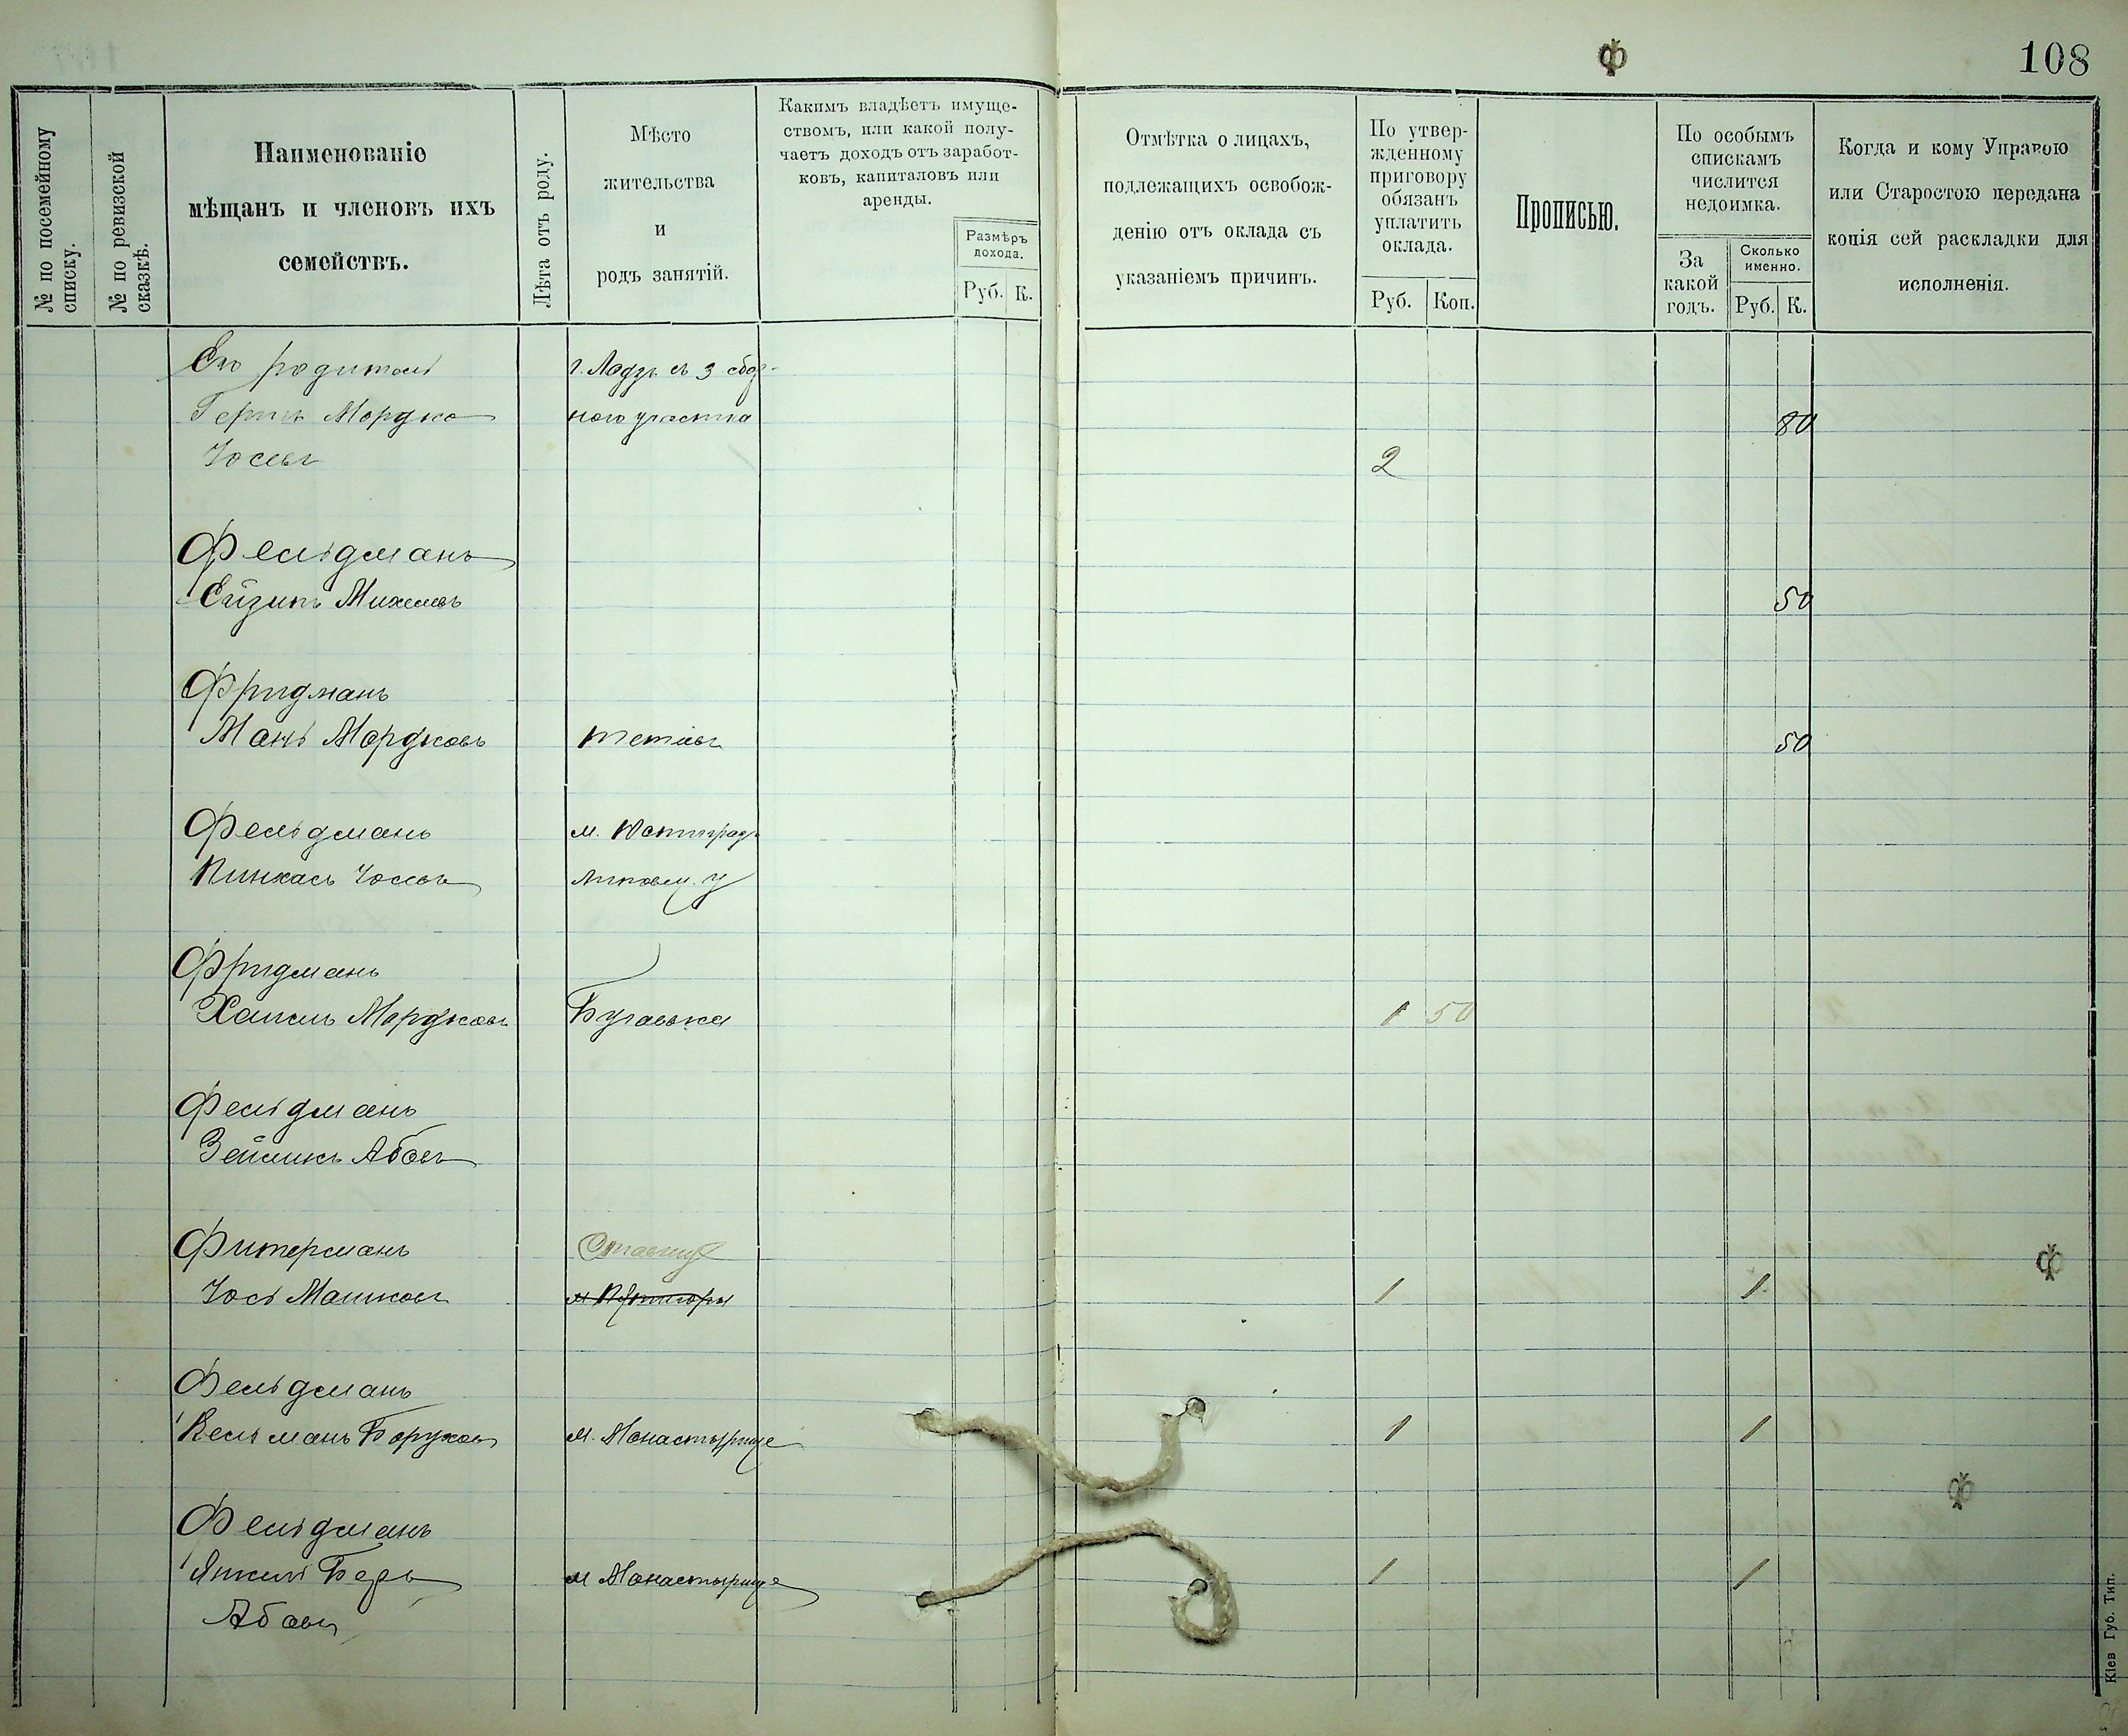 Ф
108
№ по посемейному
списку.
№ по ревизской
сказкѣ.
Наименованіе
мѣщанъ и членовъ ихъ
семействъ.
Лѣта отъ роду.
Мѣсто
жительства
и
родъ занятій.
Какимъ владѣетъ имуще-
ствомъ, или какой полу-
чаетъ доходъ отъ заработ-
ковъ, капиталовъ или
аренды.
Размѣръ
дохода.
Руб. К.
Отмѣтка о лицахъ,
подлежащихъ освобож-
денію отъ оклада съ
указаніемъ причинъ.
По утвер-
жденному
приговору
обязанъ
уплатить
оклада.
Руб. Коп.
Прописью.
По особымъ
спискамъ
числится
недоимка.
За
какой
годъ.
Сколько
именно.
Руб. К.
Когда и кому Управою
или Старостою передана
копія сей раскладки для
исполненія.
Его г. Лодзь 3 сбор-
Мордко ного участка 80
Іосевъ 2
Фельдманъ
Ейзикъ Михелевъ 50
Фридманъ
Мань Мордковъ Тетіевъ 50
Фельдманъ м. Юстинградъ
Пинхасъ Іосевъ Липовец. у
Фридманъ
Мордковъ Бугаевка 1 50
Фельдманъ
Зейликъ Абовъ
Фитерманъ
Іось Машковъ м. Пятигоры 1 1
Ф
Фельдманъ
Кельманъ Боруховъ м. Монастырище 1 1
Ф
Фельдманъ
Янкель Беръ м Монастырище 1 1
Абовъ
Кіев Губ. Тип.